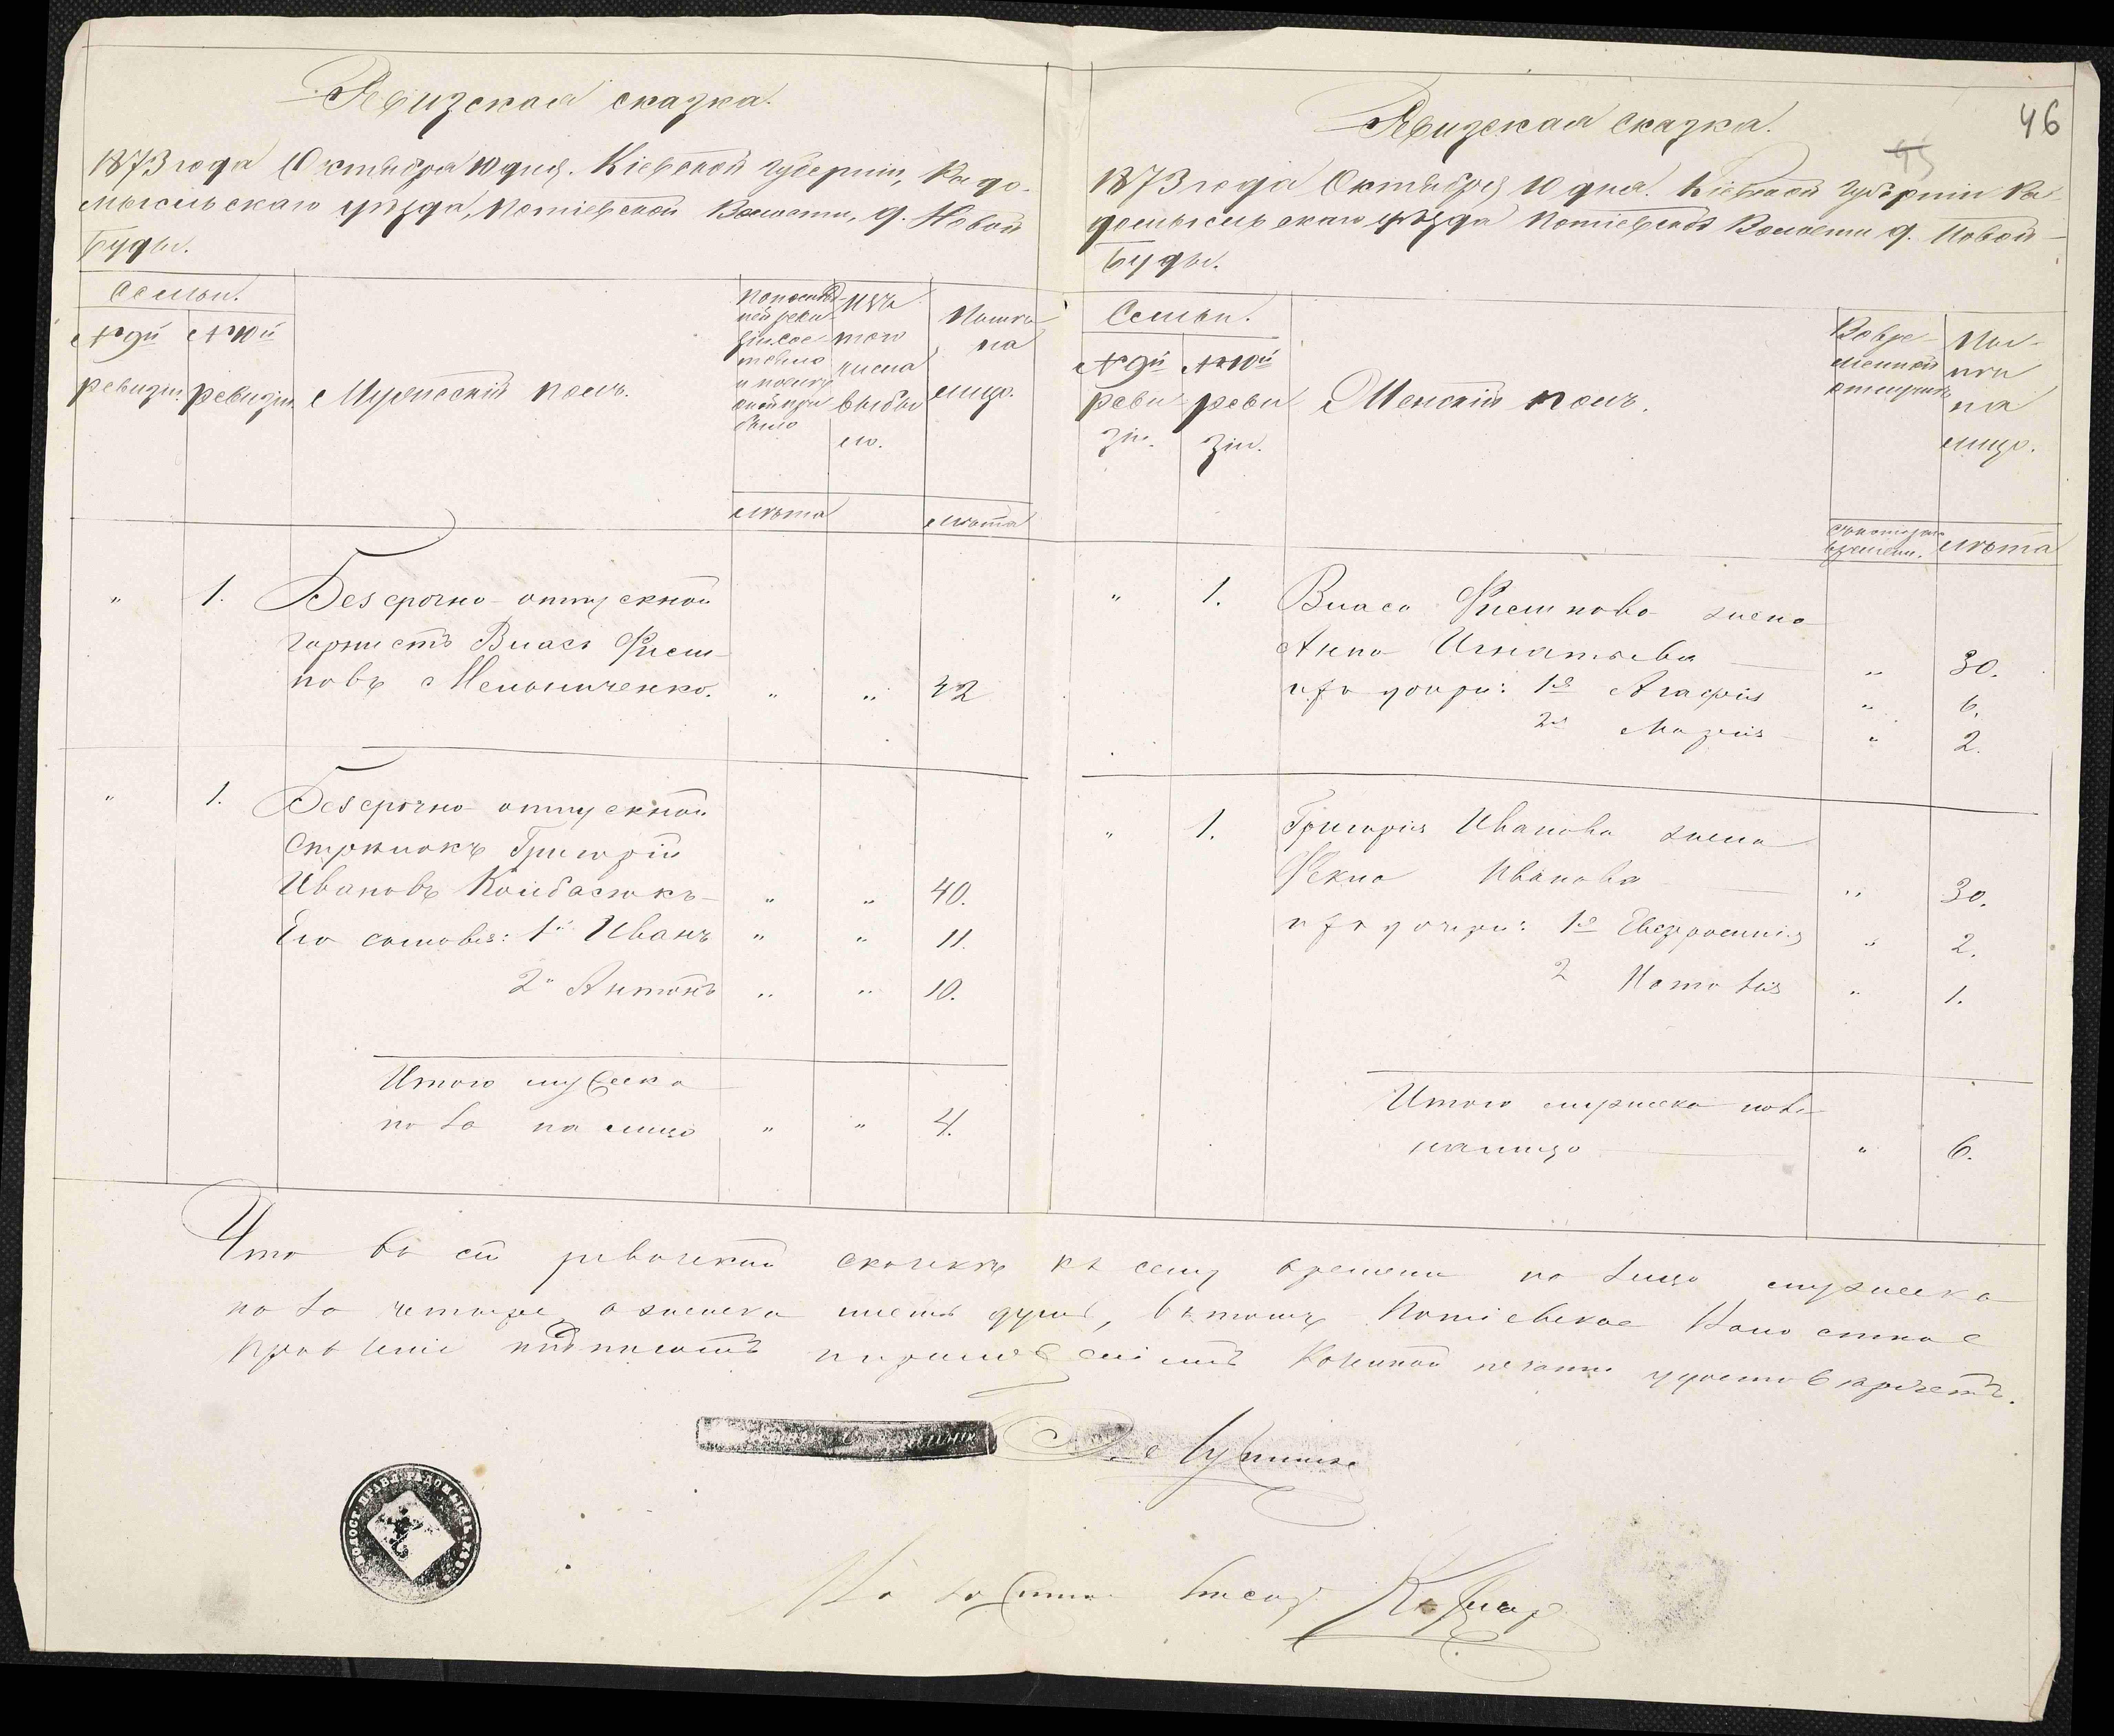 Ревизская сказка.
1873 года Октября 10 дня. Кіевской Губерніи, Радо-
мысльскаго уѣзда, Потіевской Волости, д. Новой
Буды.
Семьи.
№ 9й
ревизіи
№ 10й
ревизіи
Мужескій полъ.
По послѣд-
ней реви-
зіи сос-
тояло
и послѣ
оной при-
было
Изъ
того
числа
выбы
ло.
Нынѣ
на
лицо.
лѣта
лѣта
" 1. Безсрочно-отпускной
горнистъ Власъ
новъ Мельниченко. " " 42
" 1. Безсрочно-отпускной
Стрѣлокъ Григорій
Ивановъ Колбасюкъ " " 40.
Его сыновья: 1й Иванъ " " 11.
2й Антонъ " " 10.
Итого мужеска
пола на лицо " " 4.
46
45
Ревизская сказка.
1873 года Октября 10 дня. Кіевской Губерніи Ра-
домысльскаго уѣзда Потіевской Волости д. Новой-
Буды.
Семьи.
№ 9й
реви
зіи.
№ 10й
реви
зіи.
Женскій полъ.
Во вре-
менной
отлучкѣ
Ны-
нѣ
на
лицо.
съ котораго
времени.
лѣта
" 1. Власа жена
Анна Игнатьева " 30.
ихъ дочери: 1я Агафія " 6.
2я Марія " 2.
" 1. Григорія Иванова жена
Фекла Иванова " 30.
ихъ дочери: 1я Евфросинія " 2.
2 Наталія " 1.
Итого женска пола
на лицо " 6.
Что въ сей ревизской сказкѣ къ сему времени на лицо мужеска
пола четыре, а женска шесть душъ, въ томъ Потіевское Волостное
Правленіе подписомъ и приложеніемъ казенной печати удостовѣряетъ.
ВОЛОСТ. ПРАВЛ. РАДОМЫСЛЬ. УѢЗ.